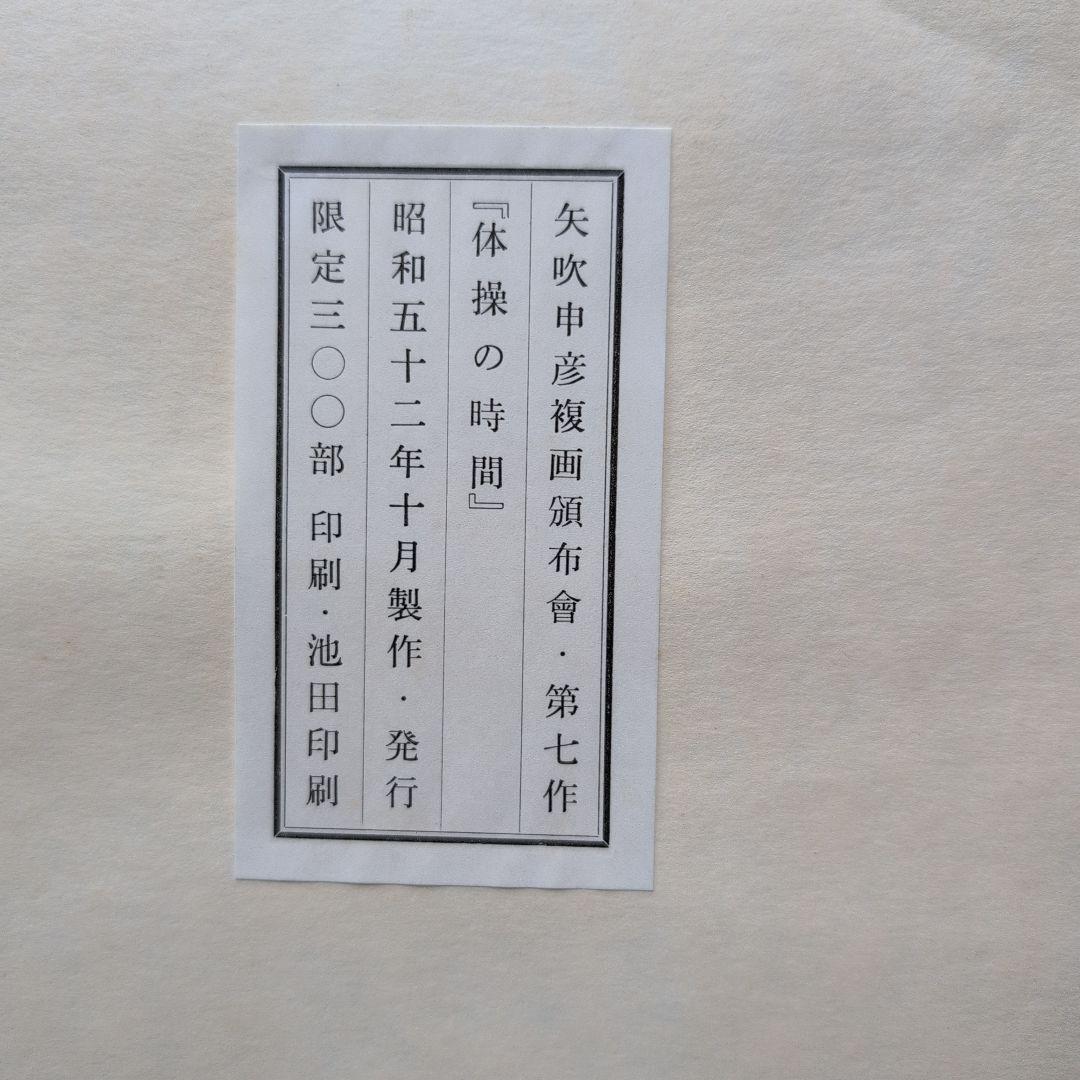 矢吹申彦複画頒布會・第七作
『体操の時間』
昭和五十二年十月製作・発行
限定三〇〇部 印刷・池田印刷